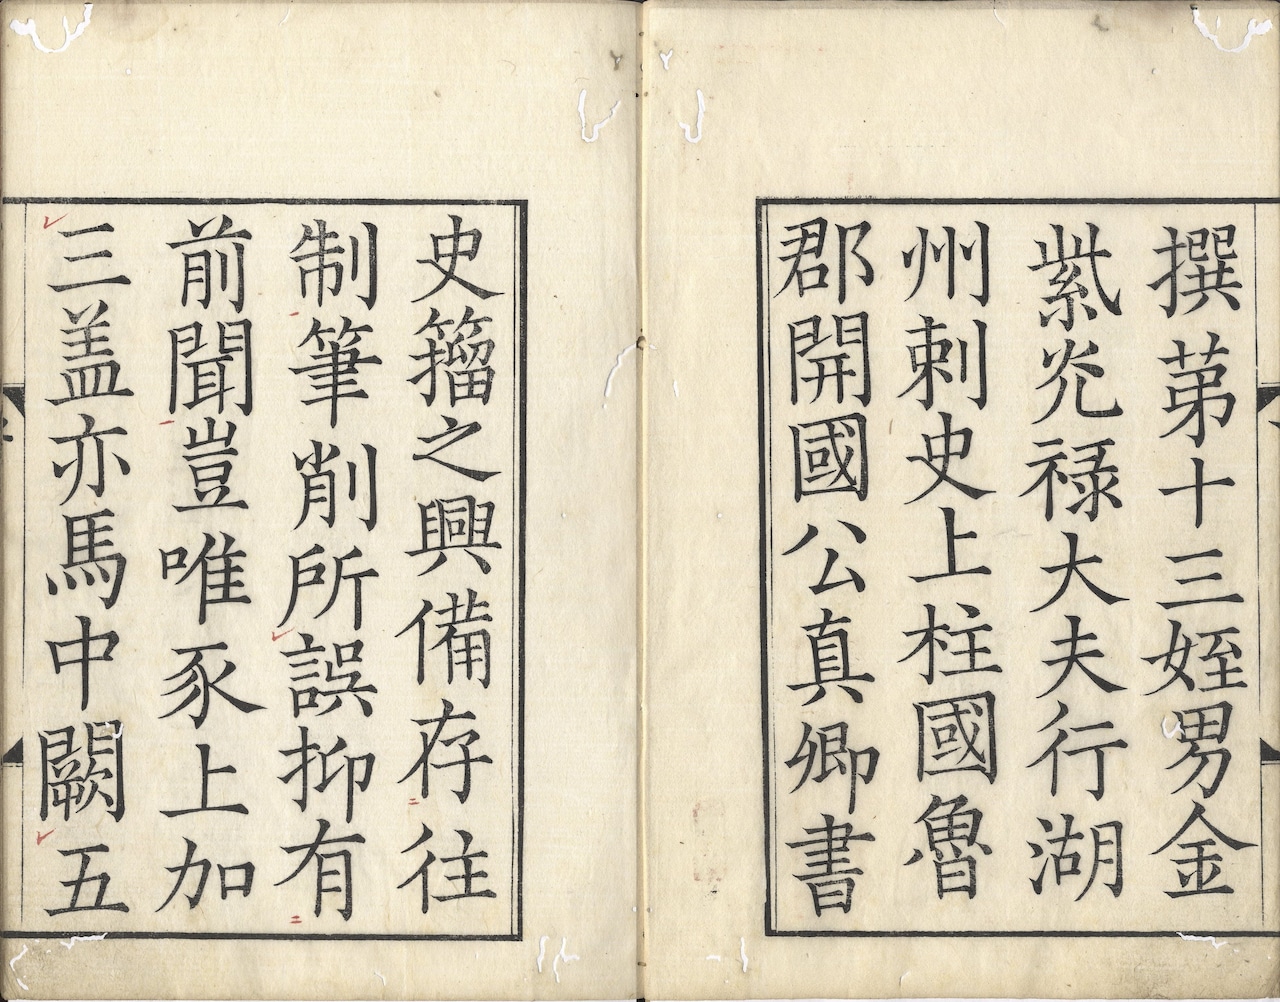 撰苐十三姪男金
紫炗禄大夫行湖
州刺史上柱國魯
郡開國公真卿書
史籀之興備存往
制筆削所誤抑有
前聞豈唯豕上加
三盖亦馬中闕五